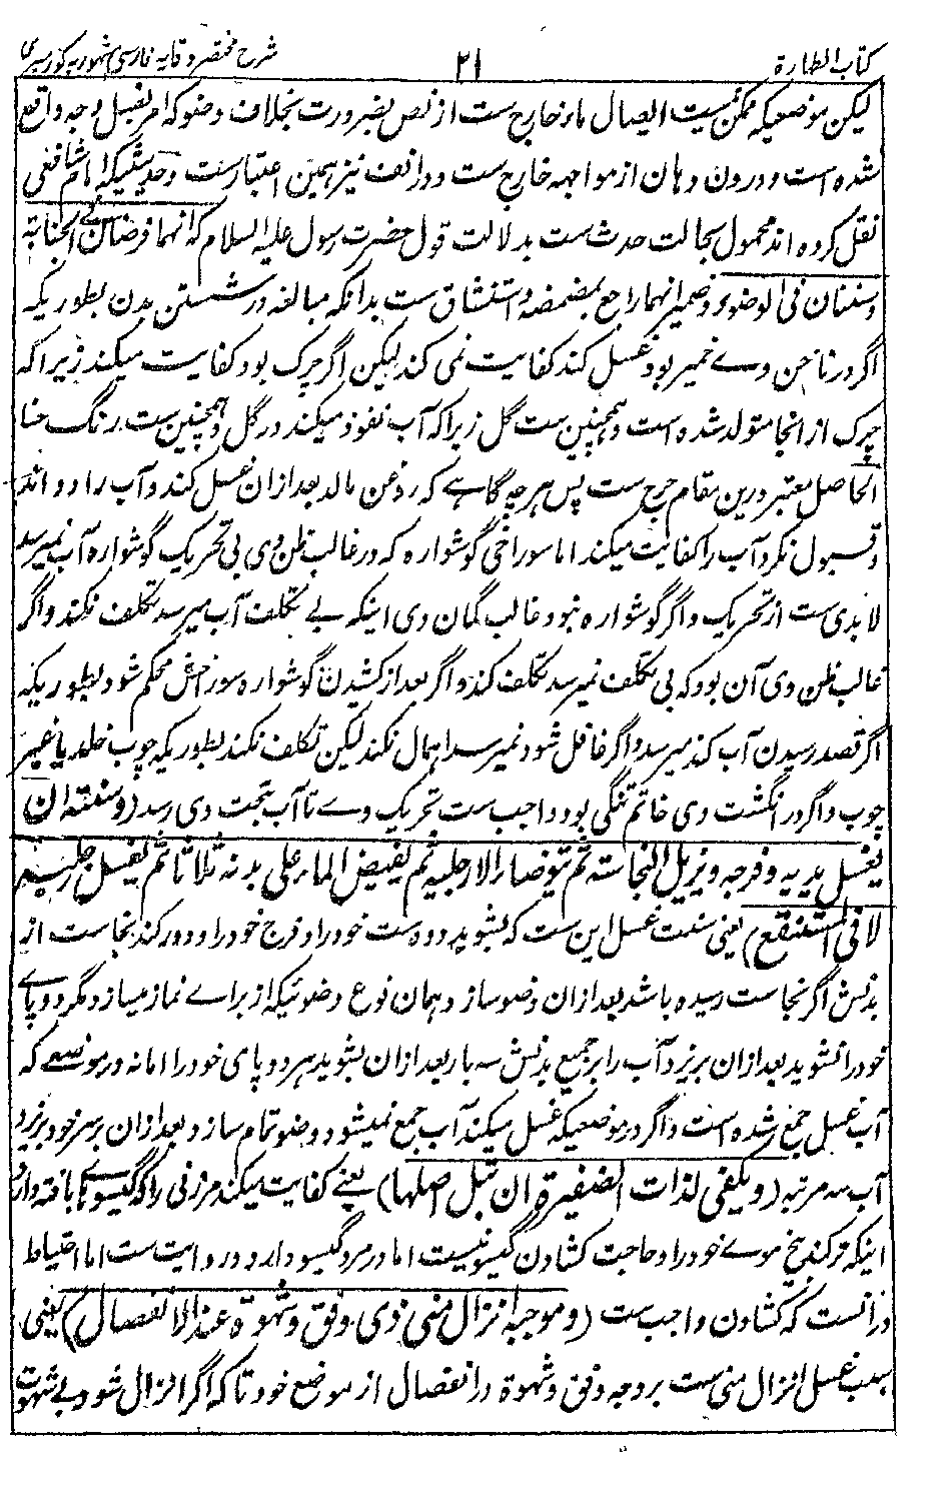 کتاب الطهارة ۲۱ شرح مختصر وقایه فارسی مشهور به کور میری
لیکن موضعیکه ممکن نیست ایصال ماء خارج ست از نص بضرورت بخلاف وضو که امر بغسل وجه واقع
شده است و درون دهان از مواجهه خارج ست و در انف نیز همین اعتبارست وحدیثیکه امام شافعی
نقل کرده اند محمول بحالت حدث ست بدلالت قول حضرت رسول علیه السلام که انهما فرضان فی الجنابة
وسنتان فی الوضوء وضمیر انهما راجع بمضمضه و استنشاق ست بدانکه مبالغه در شستن بدن بطوریکه
اگر در ناخن وے خمیر بود غسل کند کفایت نمی کند لیکن اگر چرک بود کفایت میکند زیراکه
چرک از انجا متولد شده است و همچنین ست گل زیراکه آب نفوذ میکند در گل و همچنین ست رنگ حنا
الحاصل معتبر درین مقام حرج ست پس هرچه گاہے که روغن مالد بعد ازان غسل کند و آب را دواند
و قبول نکرد آب را کفایت میکند اما سوراخی گوشواره که در غالب ظن وی بی تحریک گوشواره آب نمیرسد
لابدی ست از تحریک و اگر گوشواره نبود غالب گمان وی اینکه بے تکلف آب میرسد تکلف نکند واگر
غالب ظن وی آن بود که بی تکلف نمیرسد تکلف کند و اگر بعد از کشیدن گوشواره سوراخش محکم شود بطوریکه
اگر قصد رسیدن آب کند میرسد و اگر غافل شود نمیرسد اهمال نکند لیکن تکلف نکند بطوریکه چوب خلد یا غیر
چوب و اگر در انگشت وی خاتم تنگی بود واجب ست تحریک وے تا آب بتحت وی رسد (وسنته ان
یغسل یدیه وفرجه ویزیل النجاسة ثم یتوضا الا رجلیه ثم یفیض الماء علی بدنه ثلاثا ثم یغسل رجلیه
لا فی المستنقع) یعنی سنت غسل این ست که بشوید دو دست خود را و فرج خود را و دور کند نجاست از
بدنش اگر نجاست رسیده باشد بعد ازان وضو سازد همان نوع وضوئیکه از براے نماز میسازد مگر دو پاے
خود را نشوید بعد ازان بریزد آب را بر جمیع بدنش سه بار بعد ازان بشوید هر دو پای خود را اما نه در موضعے که
آب غسل جمع شده است و اگر در موضعیکه غسل میکند آب جمع نمیشود وضو تمام سازد بعد ازان بر سر خود بریزد
آب سه مرتبه (ویکفی لذات الضفیرة ان تبل اصلها) یعنے کفایت میکند مر زنی را که گیسوے بافته دارد
اینکه تر کند بیخ موے خود را و حاجت کشادن گیسو نیست اما در مرد گیسو دار دو روایت ست اما احتیاط
در انست که کشادن واجب ست (وموجبه انزال منی ذی دفق وشهوة عند الانفصال) یعنی
سبب غسل انزال منی ست بر وجه دفق و شهوة در انفصال از موضع خود تا که اگر انزال شود بے شهوت